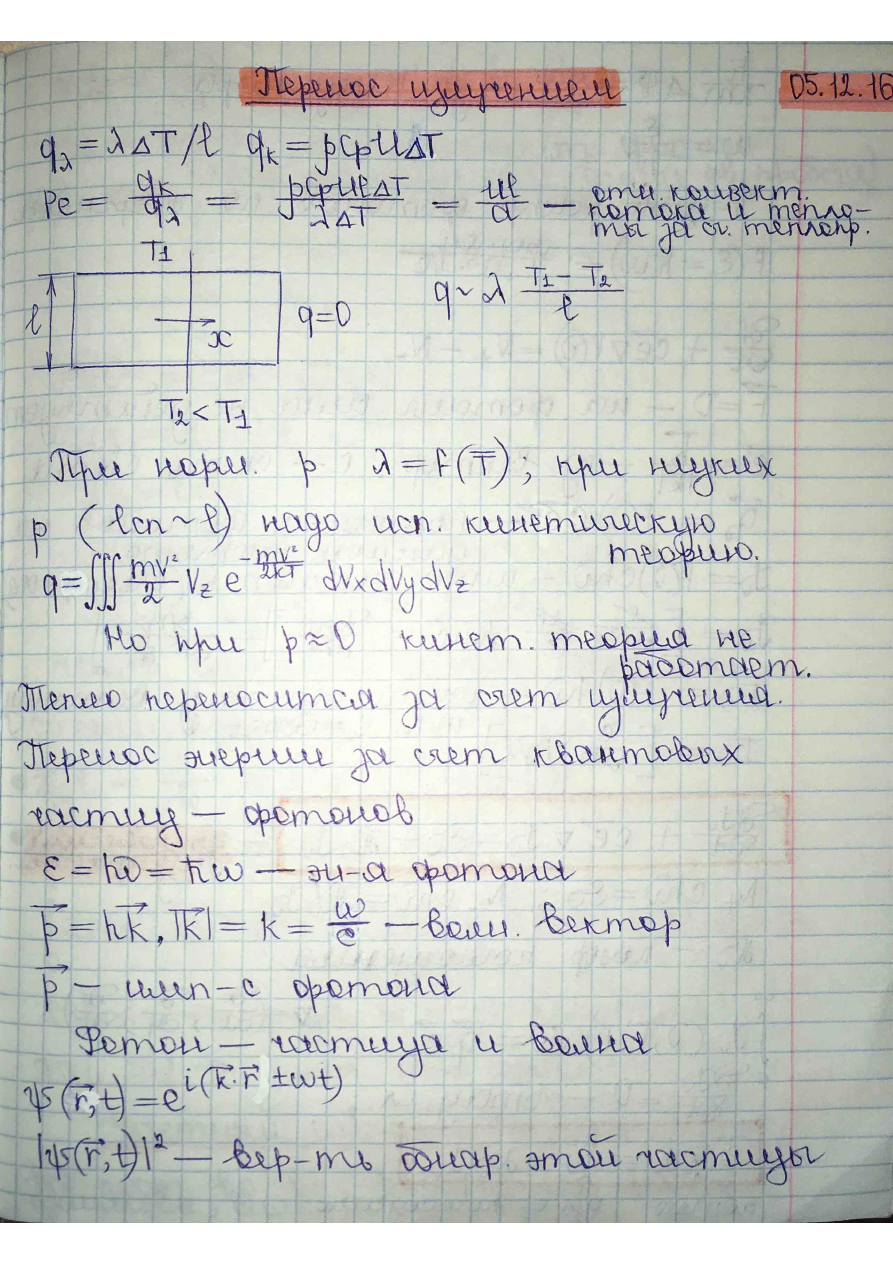 Перенос излучением 05.12.16
q_λ = λΔT/ℓ q_k = ρCpUΔT
Pe = q_k/q_λ = ρCpUℓΔT/λΔT = uℓ/a — отн. конвект.
потока и тепло-
ты за сч. теплопр.
T₁
ℓ x q=0 q ~ λ (T₁ − T₂)/ℓ
T₂ < T₁
При норм. p λ = f(T̅); при низких
p (ℓсп ~ ℓ) надо исп. кинетическую
теорию.
q = ∭ mv²/2 V_z e^(−mv²/2kT) dVxdVydVz
Но при p≈0 кинет. теория не
работает.
Тепло переносится за счет излучения.
Перенос энергии за счет квантовых
частиц — фотонов
ε = hν = ħω — эн-я фотона
p⃗ = ħk⃗, |k⃗| = k = ω/c — волн. вектор
p⃗ — имп-с фотона
Фотон — частица и волна
ψ(r⃗,t) = e^(i(k⃗·r⃗ ± ωt))
|ψ(r⃗,t)|² — вер-ть обнар. этой частицы